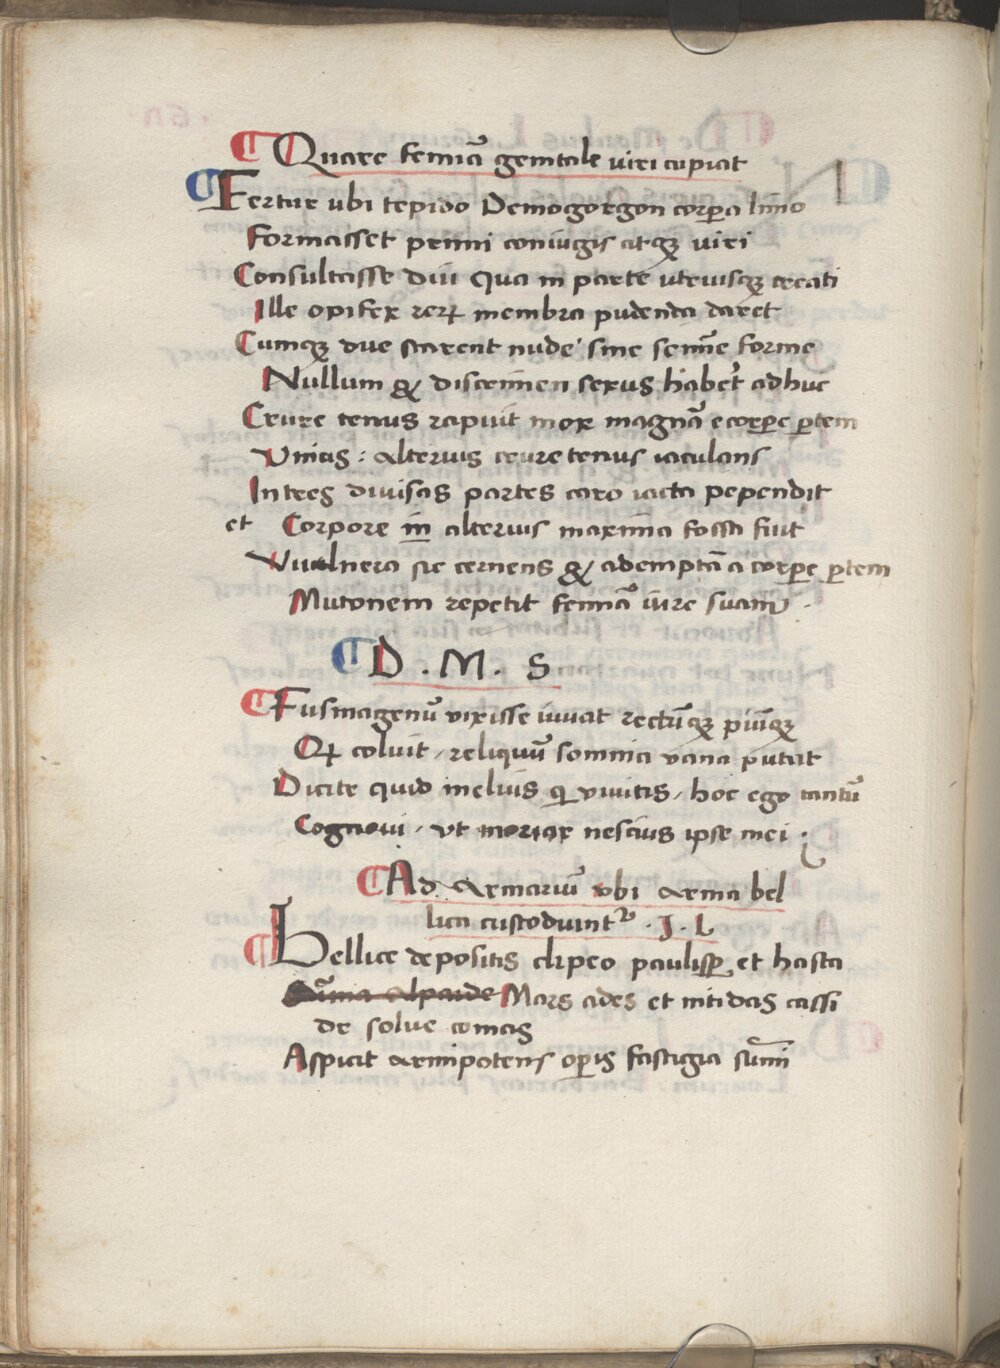 Quare feminā genitale viri cupiat
Fertur ubi tepido Demogorgon corpꝑa limo
Formasset primi coniugis atqꝫ viri
Consultasse diu qua in parte utriusqꝫ creati
Ille opifex rerꝝ membra pudenda daret
Cumqꝫ due starent nude sine semīe forme
Nullum & discrimen sexus haberꝫ adhuc
Crure tenus rapuit mox magnā e corꝑe ꝑtem
Unius : alterius crure tenus iaculans
Inter divisas partes caro iacta pependit
et Corpore in alterius maxima fossa fuit
Vulnera sic cernens & ademptā a corꝑe ꝑtem
Mutonem repetit feminā iure suam .
D . M . S
Fusmagenū vixisse iuvat rectūqꝫ piūqꝫ
Qꝫ coluit / reliquū somnia vana putat
Dicite quid melius qi vivitis / hoc ego tantū
Cognovi / ut moriar nescius ipse mei :
Ad Armariū ubi Arma bel
lica custodiunt᷑ . J . L
Bellice depositis clipeo paulisꝑ et hasta
Mars ades et nitidas cassi
de solve comas
Aspicit Armipotens oꝑis fastigia sūmi